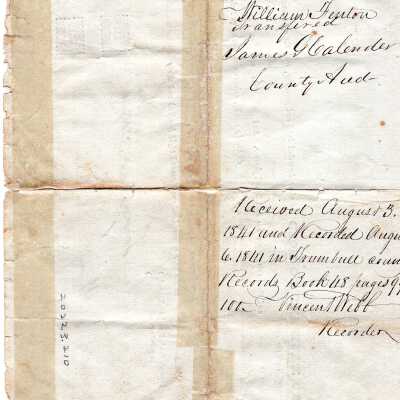 William Fenton
Transferred
James G Calender
County Aud
Received August 3.
1841 and Recorded Augu
6. 1841 in Trumbull coun
Records, Book 48 pages 9
100 Vincent Webb
Recorder